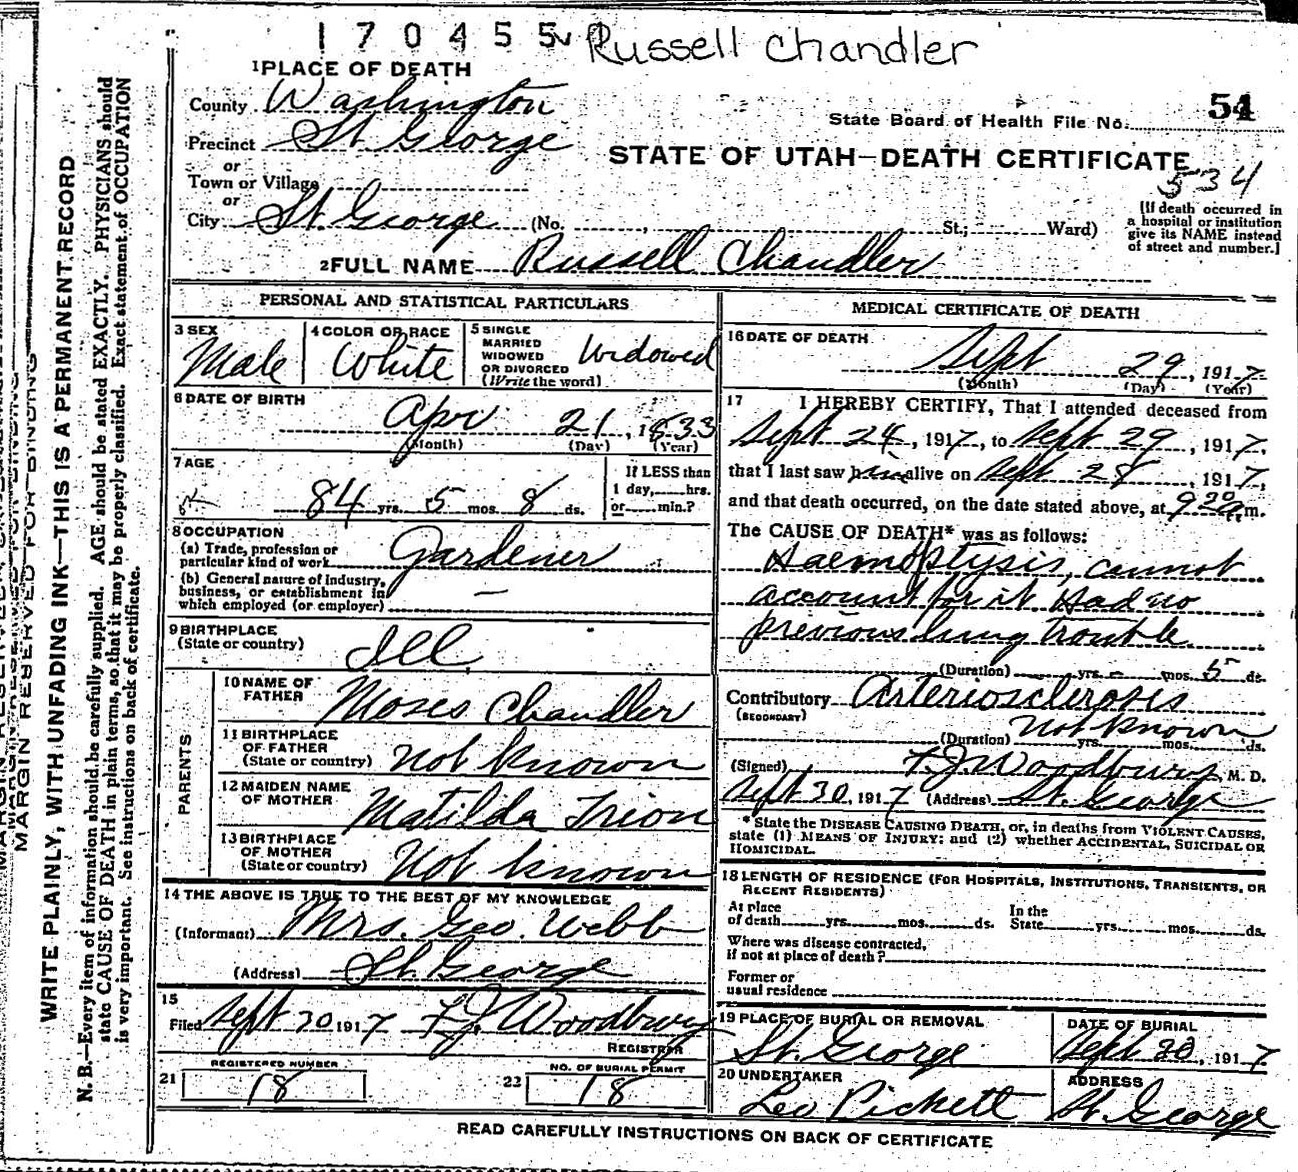 170455 Russell Chandler
1 PLACE OF DEATH
County Washington
State Board of Health File No. 54
Precinct St. George
STATE OF UTAH—DEATH CERTIFICATE
or
534
Town or Village
or
City St. George (No. , St.; Ward)
[If death occurred in
a hospital or institution
give its NAME instead
of street and number.]
2 FULL NAME Russell Chandler
PERSONAL AND STATISTICAL PARTICULARS
3 SEX
Male
4 COLOR OR RACE
White
5 SINGLE
MARRIED
WIDOWED
OR DIVORCED
(Write the word)
Widowed
6 DATE OF BIRTH
Apr 21, 1833
(Month) (Day) (Year)
7 AGE
84 yrs. 5 mos. 8 ds.
If LESS than
1 day, hrs.
or min.?
8 OCCUPATION
(a) Trade, profession or
particular kind of work Gardener
(b) General nature of Industry,
business, or establishment in
which employed (or employer) —
9 BIRTHPLACE
(State or country) Ill
PARENTS
10 NAME OF
FATHER Moses Chandler
11 BIRTHPLACE
OF FATHER
(State or country) Not known
12 MAIDEN NAME
OF MOTHER Matilda Trion
13 BIRTHPLACE
OF MOTHER
(State or country) Not known
14 THE ABOVE IS TRUE TO THE BEST OF MY KNOWLEDGE
(Informant) Mrs. Geo. Webb
(Address) St. George
15
Filed Sept 30 1917 F.J. Woodbury
REGISTRAR
REGISTERED NUMBER
21 18
NO. OF BURIAL PERMIT
22 18
MEDICAL CERTIFICATE OF DEATH
16 DATE OF DEATH
Sept 29, 1917
(Month) (Day) (Year)
17 I HEREBY CERTIFY, That I attended deceased from
Sept 24, 1917, to Sept 29, 1917,
that I last saw him alive on Sept 28, 1917,
and that death occurred, on the date stated above, at 9 20 a m.
The CAUSE OF DEATH* was as follows:
Haemoptysis, cannot
account for it Had no
previous lung trouble
(Duration) yrs. – mos. 5 ds.
Contributory Arteriosclerosis
(SECONDARY)
Not known
(Duration) yrs. mos. ds.
(Signed) F.J. Woodbury, M. D.
Sept 30, 1917 (Address) St. George
*State the DISEASE CAUSING DEATH, or, in deaths from VIOLENT CAUSES,
state (1) MEANS OF INJURY; and (2) whether ACCIDENTAL, SUICIDAL OR
HOMICIDAL.
18 LENGTH OF RESIDENCE (FOR HOSPITALS, INSTITUTIONS, TRANSIENTS, OR
RECENT RESIDENTS)
At place
of death yrs. mos. ds.
In the
State yrs. mos. ds.
Where was disease contracted,
If not at place of death?
Former or
usual residence
19 PLACE OF BURIAL OR REMOVAL
St. George
DATE OF BURIAL
Sept 30, 1917
20 UNDERTAKER
Leo Pickett
ADDRESS
St. George
READ CAREFULLY INSTRUCTIONS ON BACK OF CERTIFICATE
MARGIN RESERVED FOR BINDING
WRITE PLAINLY, WITH UNFADING INK—THIS IS A PERMANENT RECORD
N. B.—Every item of information should be carefully supplied. AGE should be stated EXACTLY. PHYSICIANS should
state CAUSE OF DEATH in plain terms, so that it may be properly classified. Exact statement of OCCUPATION
is very important. See instructions on back of certificate.